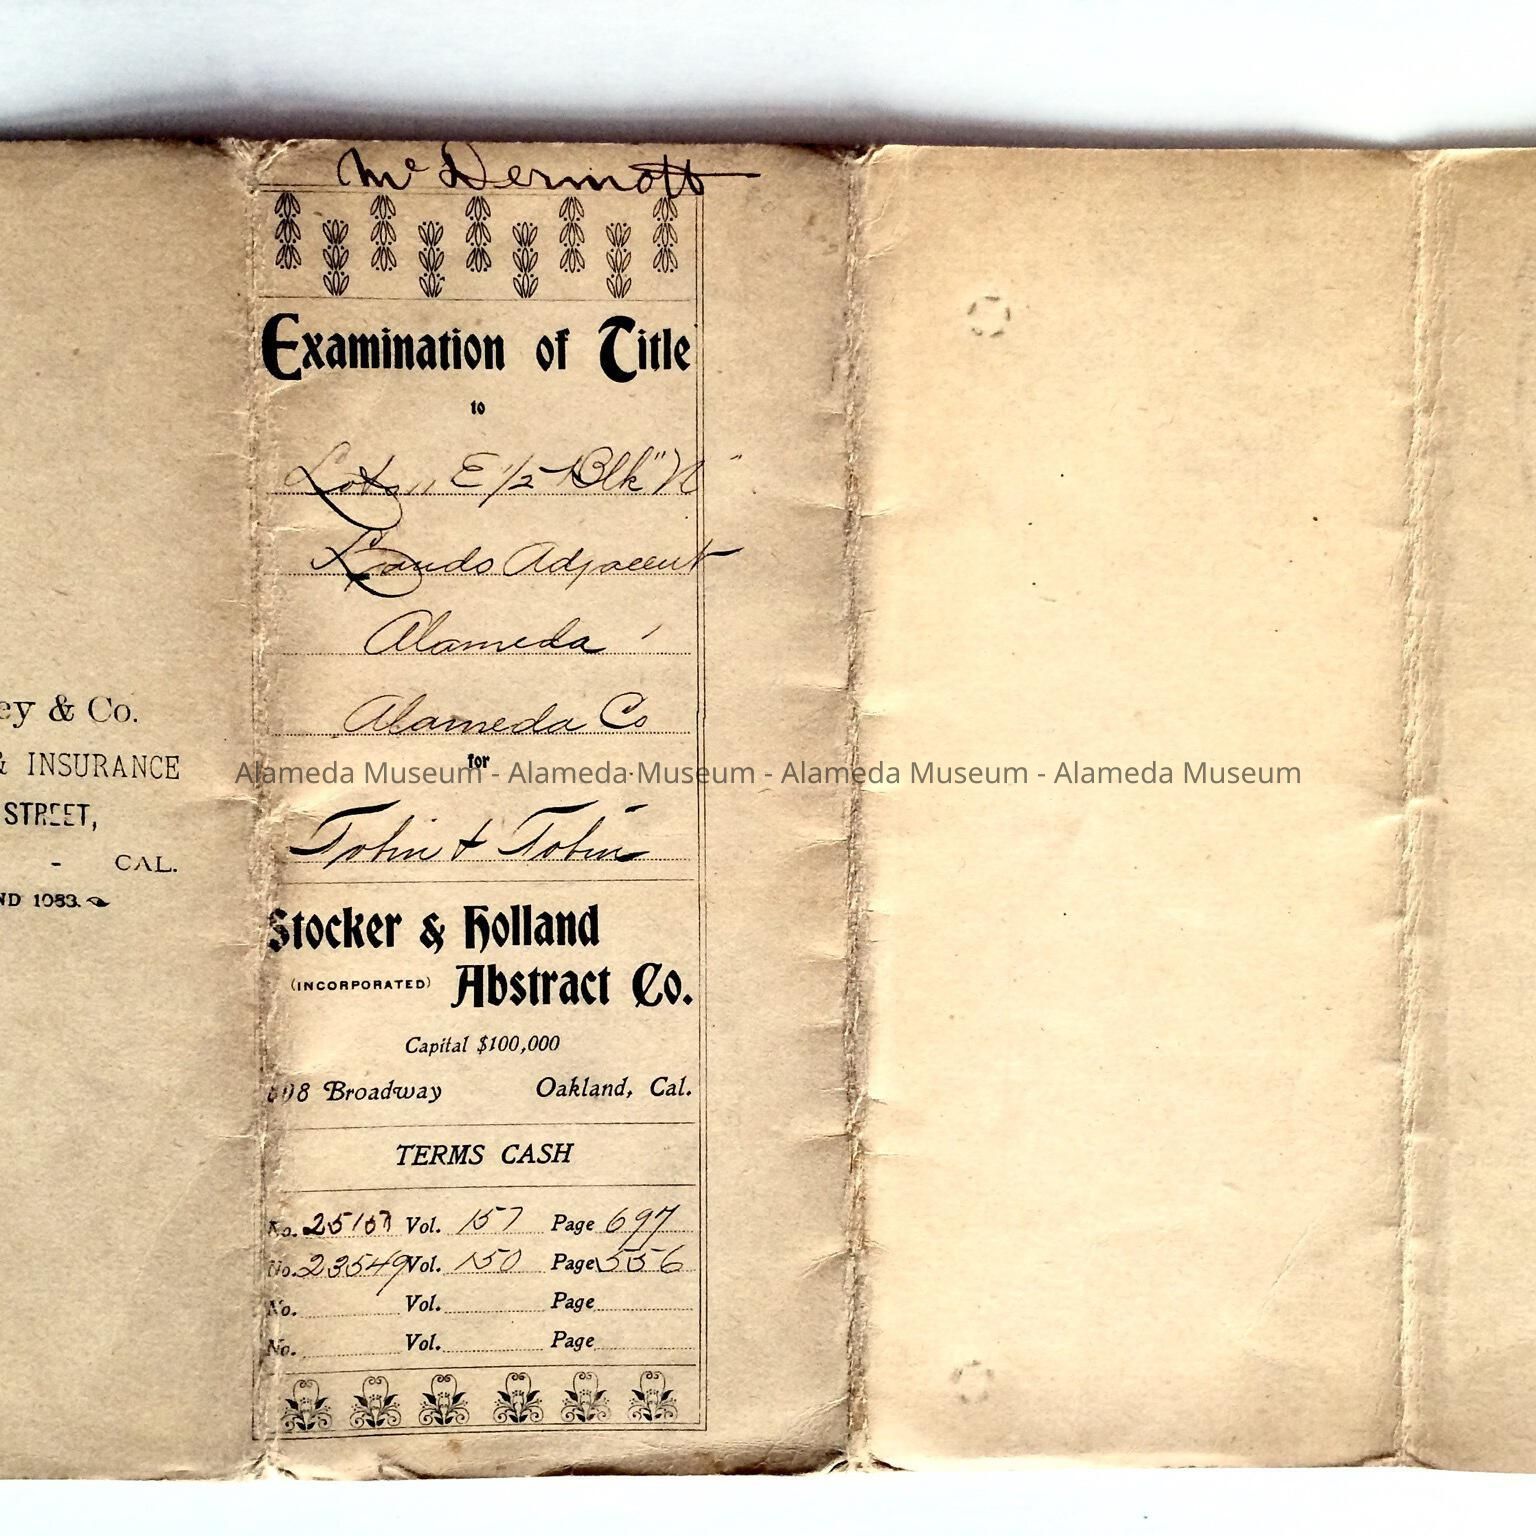 ey & Co.
& INSURANCE
STREET,
- CAL.
ND 1083.
McDermott
Examination of Title
to
Lots,, E 1/2 Blk "N"
Lands Adjacent
Alameda
Alameda Co
for
Tobin & Tobin
Stocker & Holland
(INCORPORATED) Abstract Co.
Capital $100,000
Broadway Oakland, Cal.
TERMS CASH
No. Vol. 157 Page 697
No. 23549 Vol. 150 Page 556
No. Vol. Page
No. Vol. Page
Alameda Museum - Alameda Museum - Alameda Museum - Alameda Museum